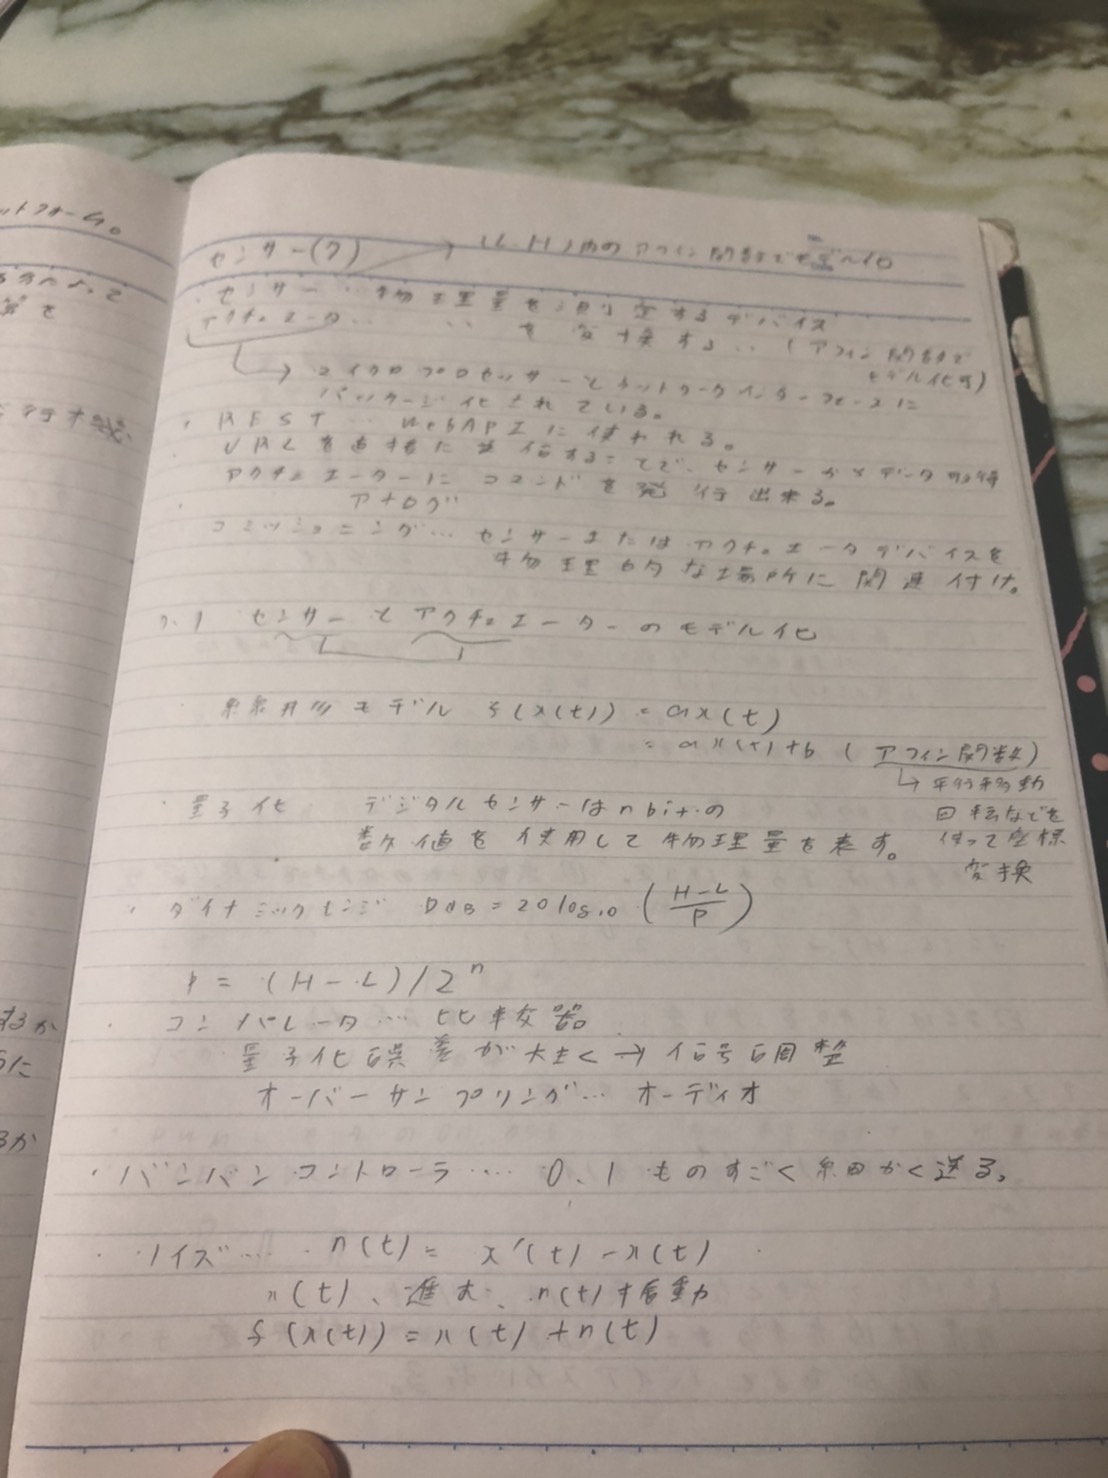 ットフォーム。
センサー(7) → (L-H)内のアフィン関数でモデル化
・センサー… 物理量を測定するデバイス
アクチュエータ… 〃 を変換する〃 (アフィン関数で
モデル化可)
→ マイクロプロセッサーとネットワークインターフェースに
パッケージ化されている。
・REST… WebAPIに使われる。
URLを直接に送信することで、センサーからデータ取得
アクチュエーターにコマンドを発行出来る。
アナログ
コミッショニング… センサーまたはアクチュエータデバイスを
物理的な場所に関連付け。
7.1 センサーとアクチュエーターのモデル化
・線形モデル f(x(t)) = ax(t)
= ax(t)+b (アフィン関数)
↳ 平行移動
回転などを
使って座標
変換
・量子化 デジタルセンサーはn bitの
数値を使用して物理量を表す。
・ダイナミックレンジ DdB = 20 log10 (H-L/P)
P = (H-L)/2^n
・コンパレータ… 比較器。
量子化誤差が大きく → 信号調整
オーバーサンプリング… オーディオ
・バンバンコントローラ…. 0.1ものすごく細かく送る。
・ノイズ… n(t) = x'(t) - x(t)
x(t)、進む、n(t)振動
f(x(t)) = x(t) + n(t)